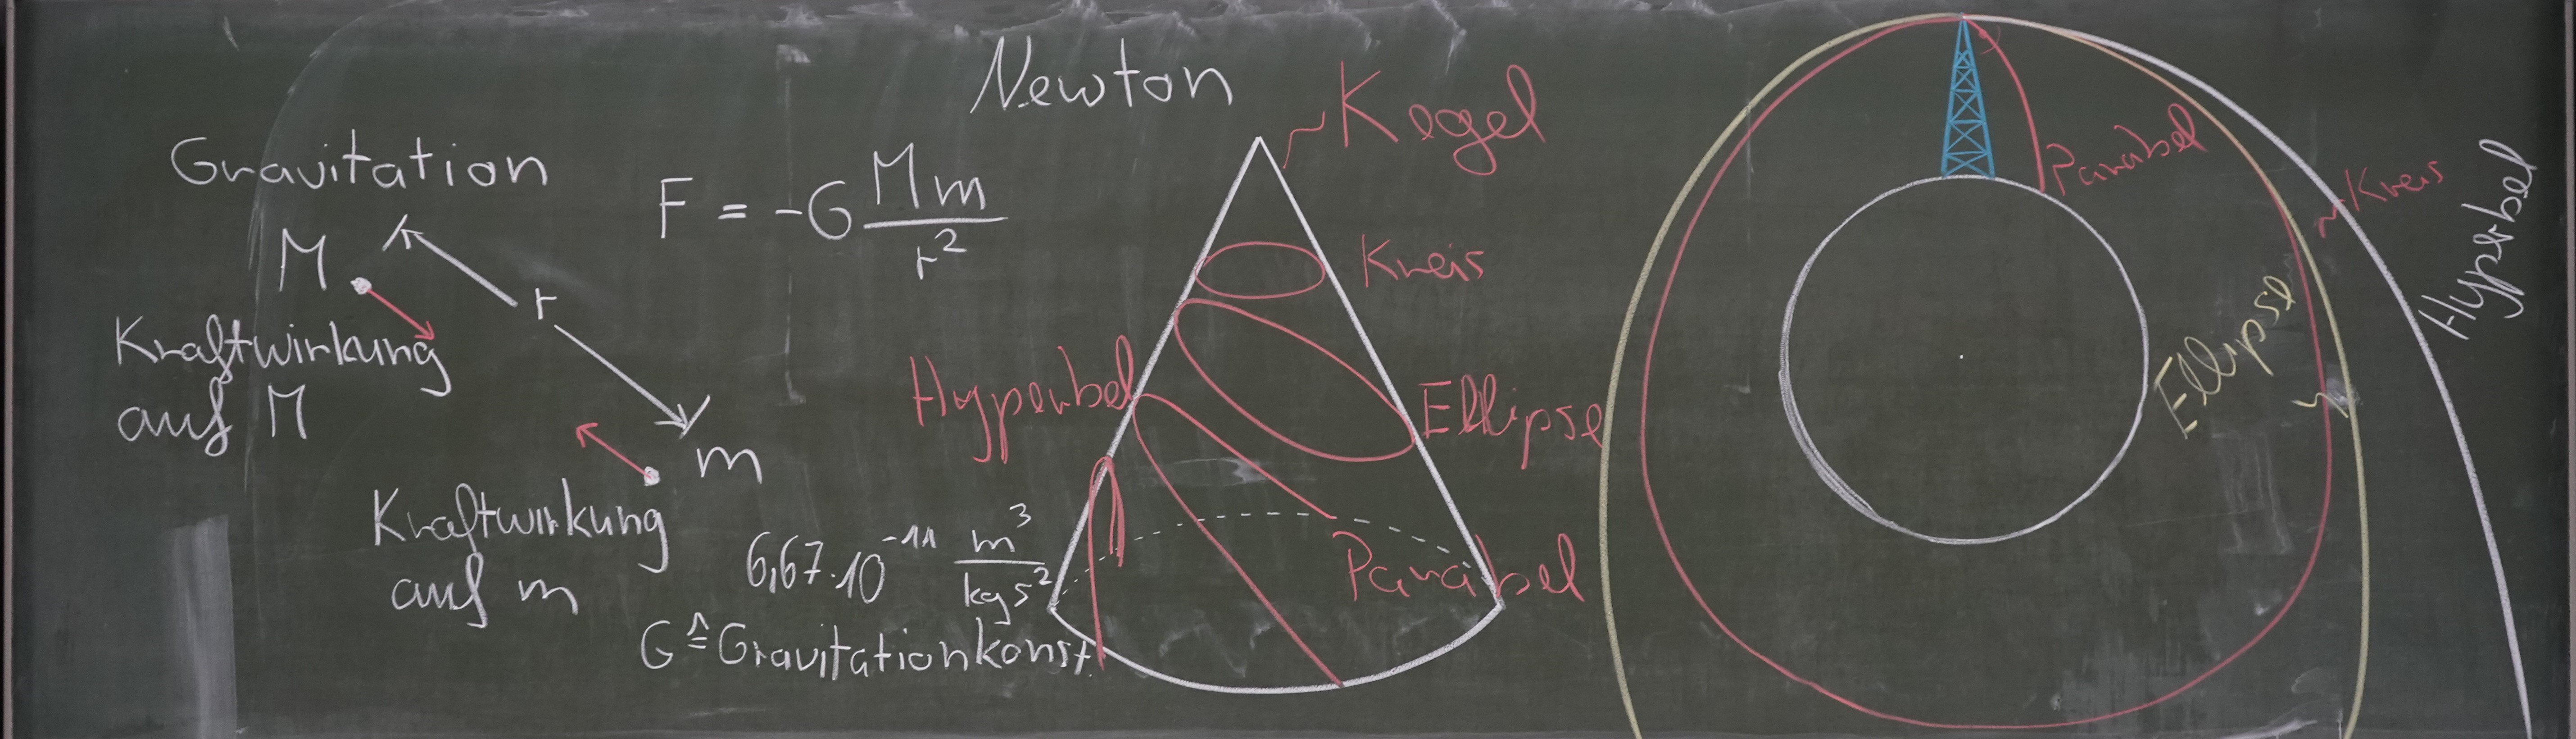 Newton
Gravitation
M
r
Kraftwirkung
auf M
m
Kraftwirkung
auf m
F = -G Mm/r²
6,67·10⁻¹¹ m³/kg s²
G ≙ Gravitationkonst.
Kegel
Kreis
Ellipse
Hyperbel
Parabel
Parabel
Kreis
Ellipse
Hyperbel